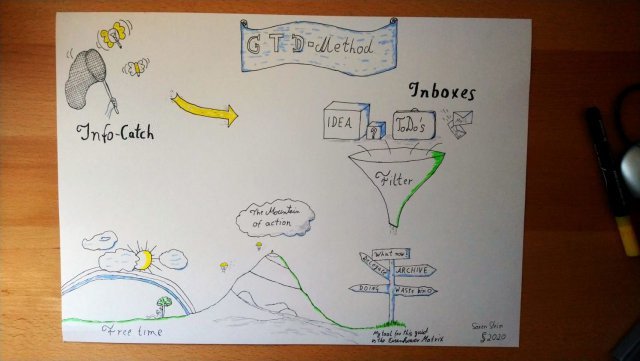 GTD-Method
Inboxes
IDEA
?
ToDo's
Info-Catch
Filter
The Mountain
of action
What now?
DELEGATE
ARCHIVE
DOING
WASTE BIN
Free time
My tool for this guid
is the Eisenhower Matrix
2020